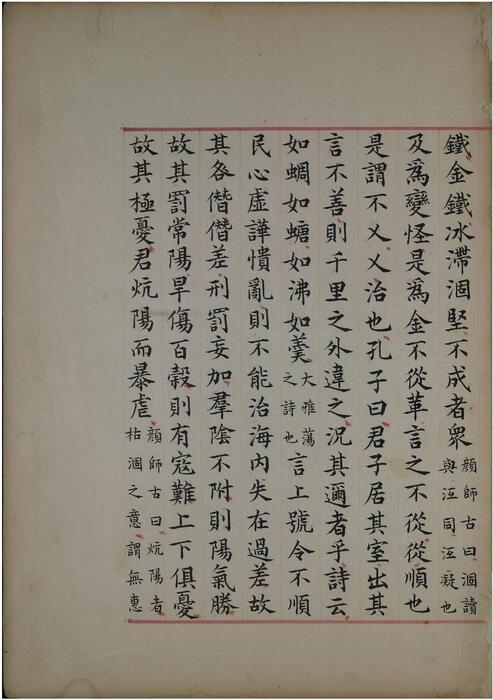 鐵金鐵冰滯涸堅不成者衆顔師古曰涸讀與沍同沍凝也
及爲變怪是爲金不從革言之不從從順也
是謂不乂乂治也孔子曰君子居其室出其
言不善則千里之外違之況其邇者乎詩云
如蜩如螗如沸如羹大雅蕩之詩也言上號令不順
民心虛譁憒亂則不能治海內失在過差故
其咎僭僭差刑罰妄加羣陰不附則陽氣勝
故其罰常陽旱傷百穀則有寇難上下俱憂
故其極憂君炕陽而暴虐顔師古曰炕陽者枯涸之意謂無惠